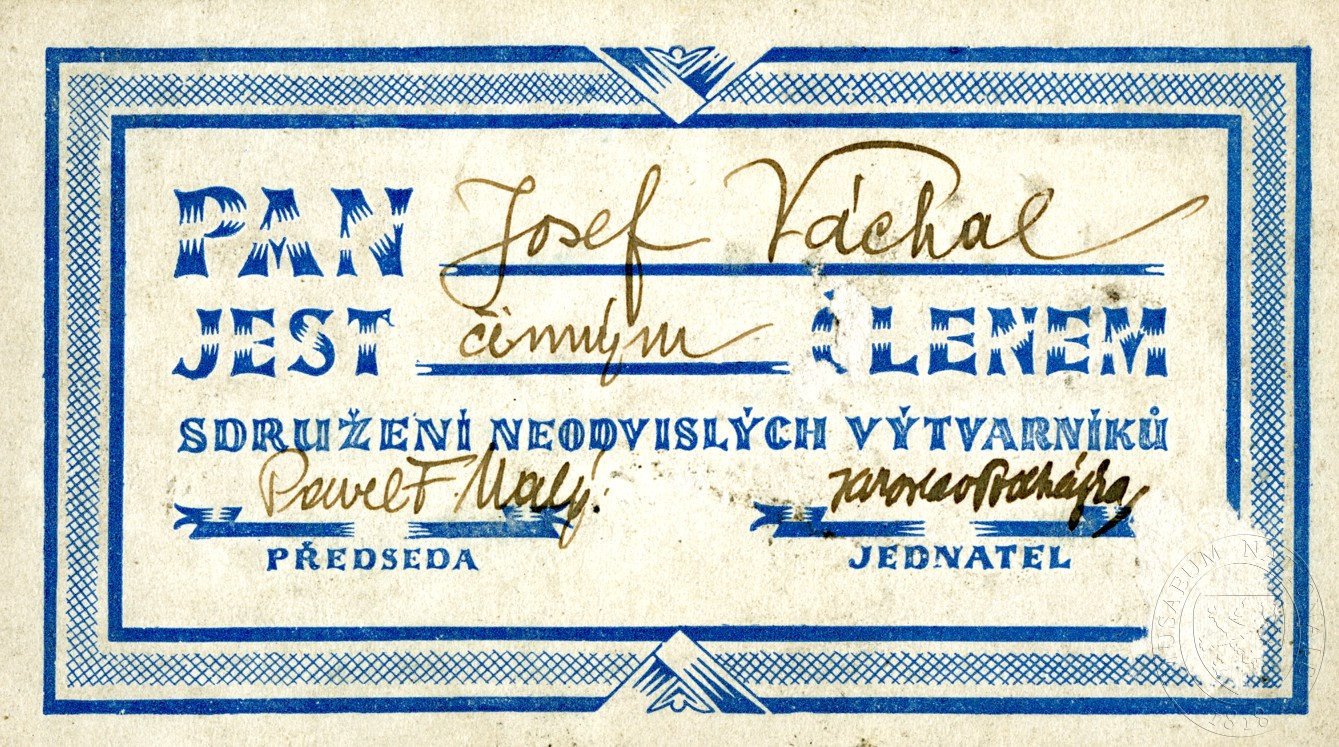 PAN Josef Váchal
JEST činným ČLENEM
SDRUŽENÍ NEODVISLÝCH VÝTVARNÍKŮ
Pavel F. Malý. Jaroslav
PŘEDSEDA JEDNATEL
1818